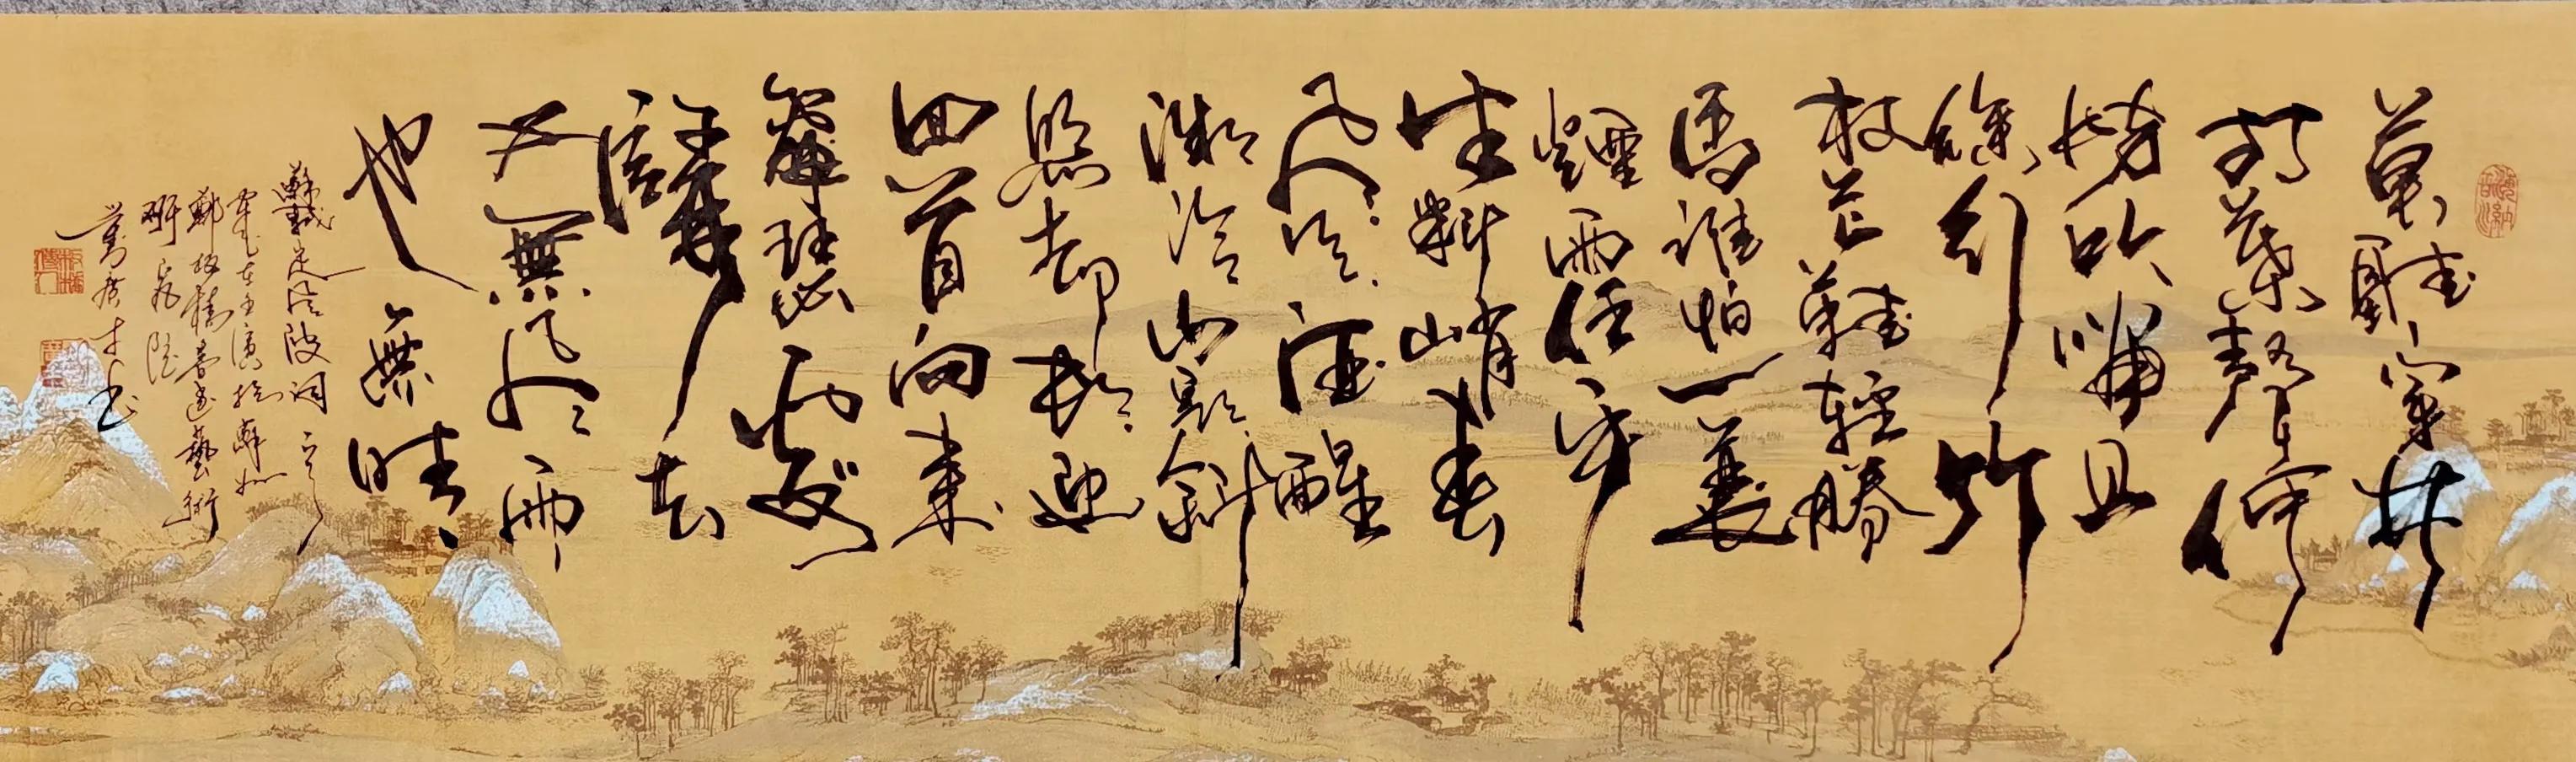 莫聽穿林
打葉聲何
妨吟嘯且
徐行竹
杖芒鞋輕勝
馬誰怕一蓑
煙雨任平
生料峭春
風吹酒醒
微冷山頭斜
照卻相迎
回首向來
蕭瑟處
歸去
也無風雨
也無晴
蘇軾定風波詞
鄭板橋書畫藝術
研究院